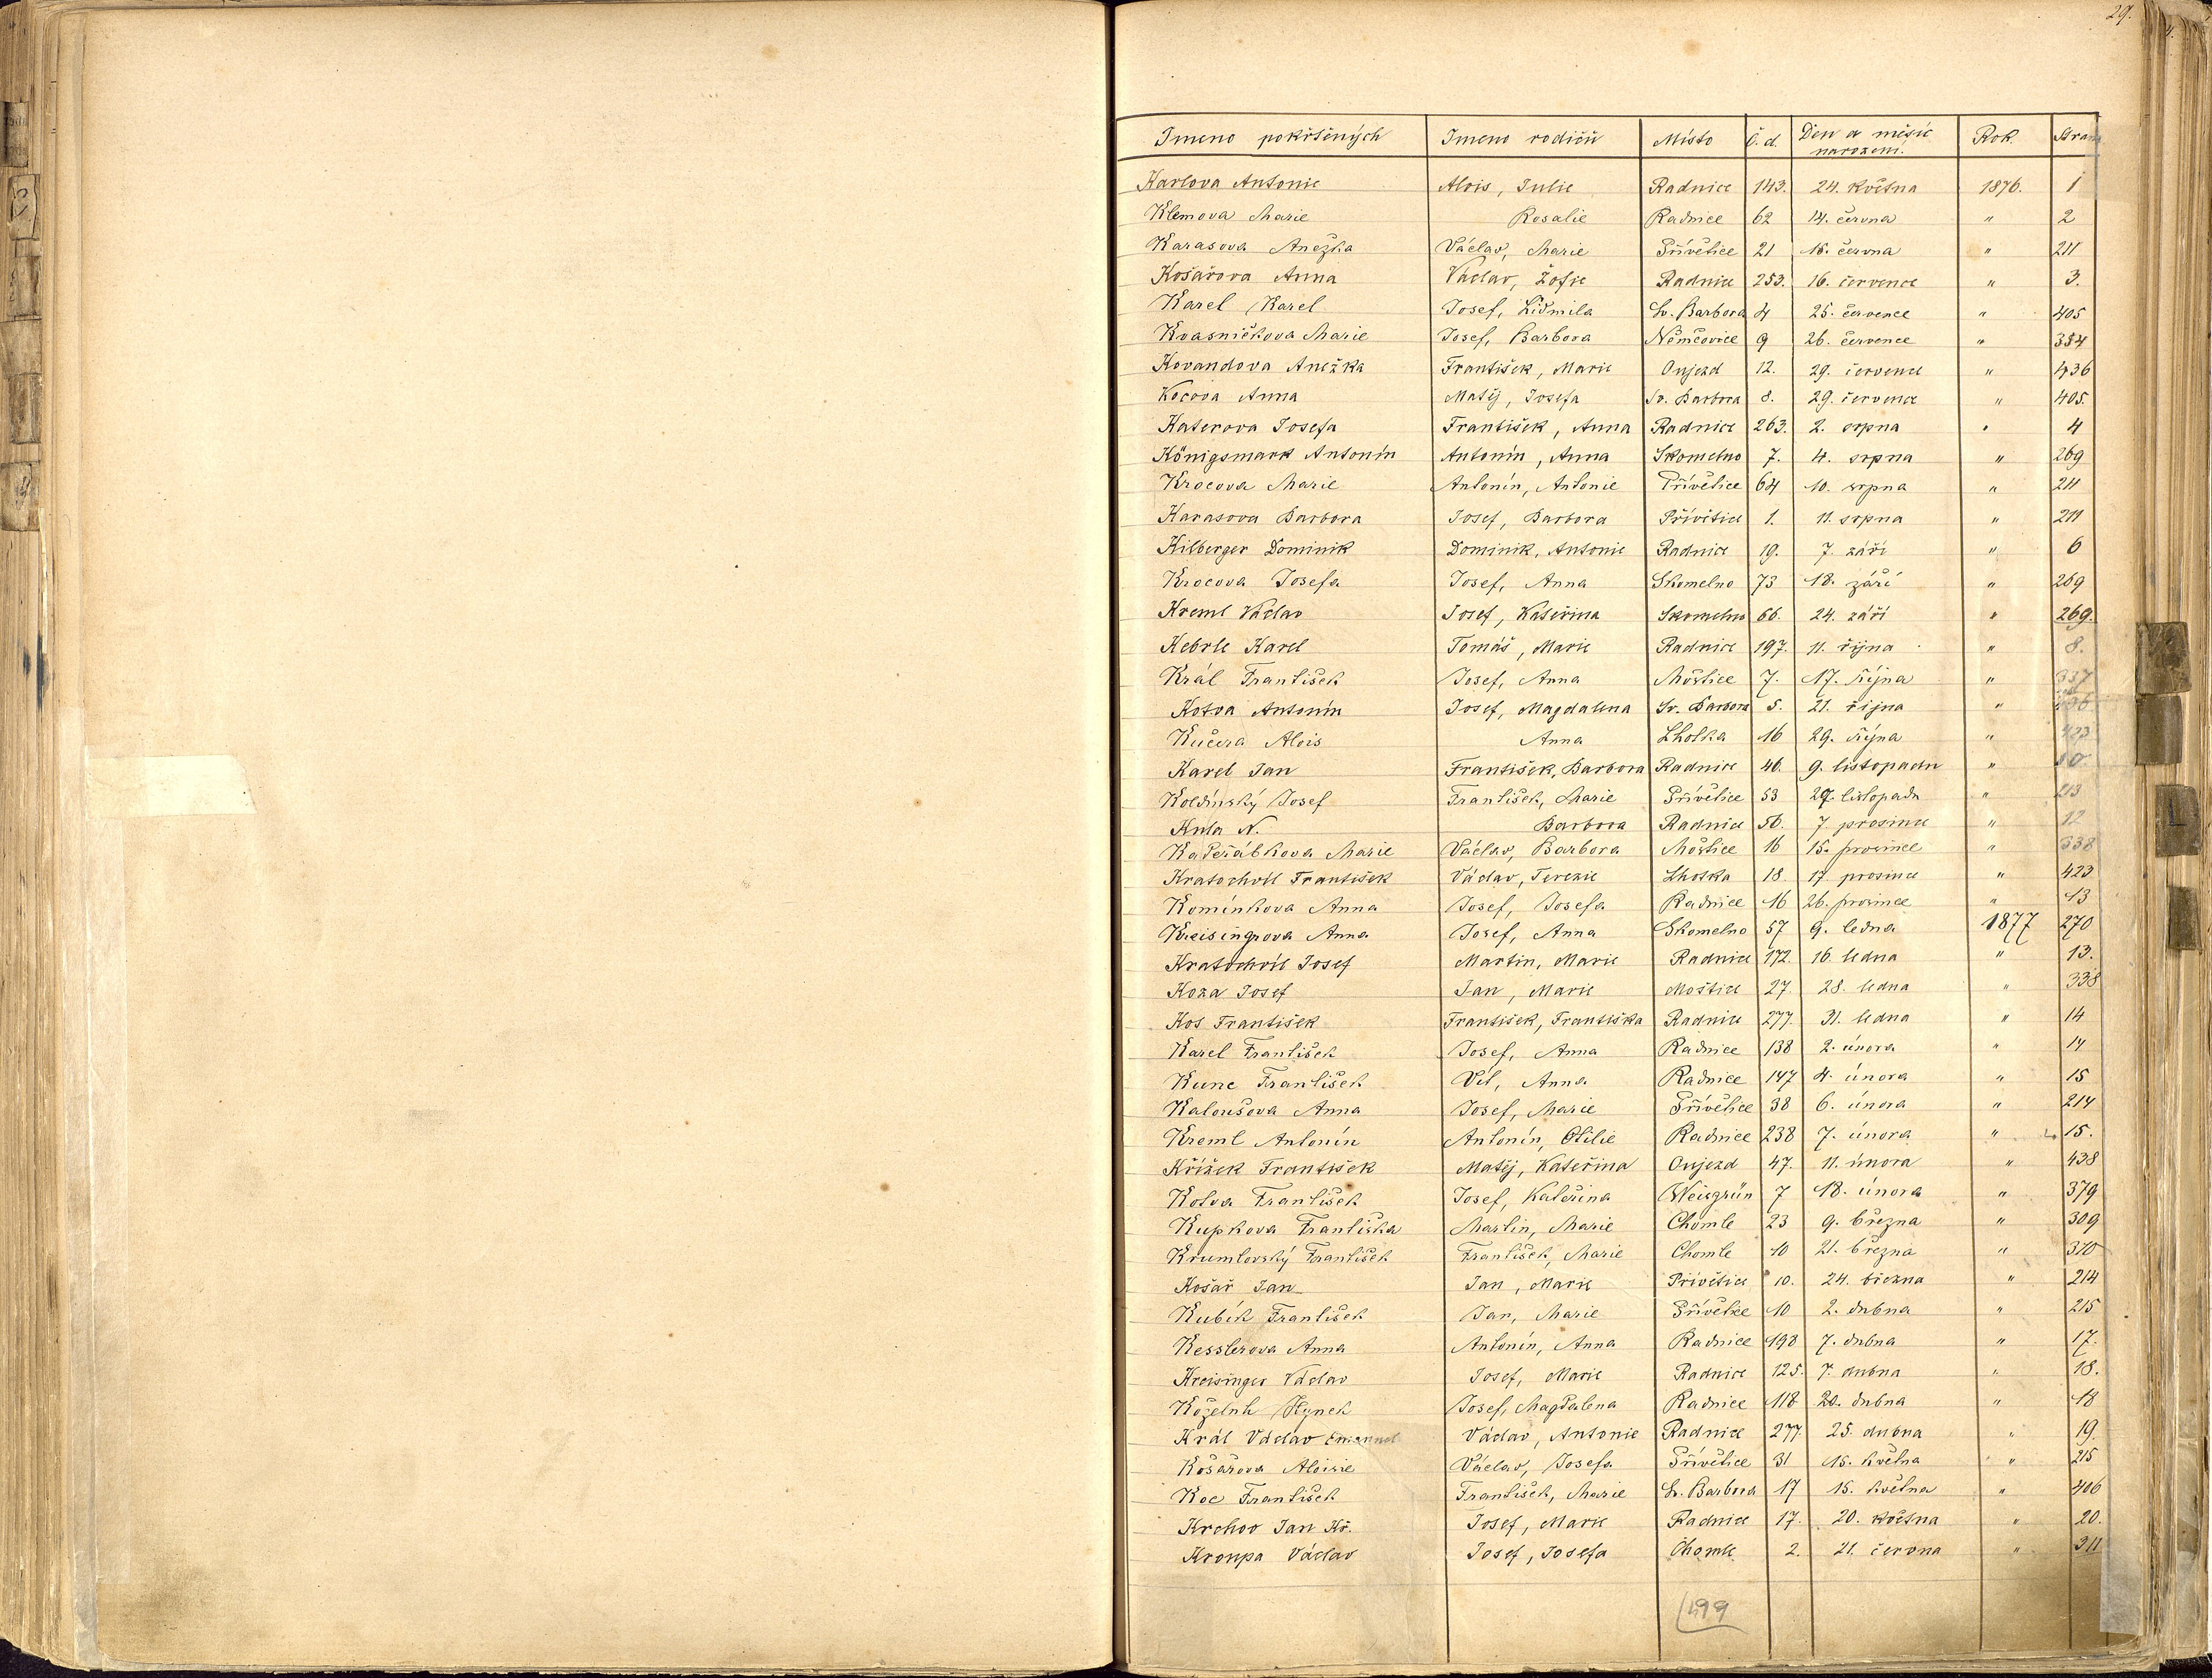 29.
Jmeno pokřtěných Jmeno rodičů Místo Č.d. Den a měsíc narození. Rok. Stran
Karlova Antonie Alois, Julie Radnice 143. 24. května 1876. 1
Klemova Marie Rosalie Radnice 62 14. června " 2
Karasova Anežka Václav, Marie Přívětice 21 15. června " 211
Košařova Anna Václav, Žofie Radnice 253. 16. července " 3.
Karel Karel Josef, Lidmila Sv. Barbora 4 25. července " 405
Kvasničkova Marie Josef, Barbora Němčovice 9 26. července " 354
Kovandova Anežka František, Marie Oujezd 12. 29. července " 436
Kocova Anna Matěj, Josefa Sv. Barbora 8. 29. července " 405.
Katerova Josefa František, Anna Radnice 263. 2. srpna " 4
Königsmark Antonín Antonín, Anna Skomelno 7. 4. srpna " 269
Krocova Marie Antonín, Antonie Přívětice 64 10. srpna " 211
Karasova Barbora Josef, Barbora Přívětice 1. 11. srpna " 211
Kilberger Dominik Dominik, Antonie Radnice 19. 7. září " 6
Krocova Josefa Josef, Anna Skomelno 73 18. září " 269
Kreml Václav Josef, Kateřina Skomelno 66. 24. září " 269.
Kebrle Karel Tomáš, Marie Radnice 197. 11. října " 8.
Král František Josef, Anna Moštice 7. 17. října " 337
Kotva Antonín Josef, Magdalena Sv. Barbora 5. 21. října "
Kučera Alois Anna Lhotka 16 29. října " 423
Karel Jan František, Barbora Radnice 46. 9. listopadu " 10
Koldinský Josef František, Marie Přívětice 53 29. listopadu " 213
Kuta N. Barbora Radnice 56. 7. prosince " 12
Kadeřábkova Marie Václav, Barbora Moštice 16 15. prosince " 338
Kratochvíl František Václav, Terezie Lhotka 18. 17. prosince " 423
Komínkova Anna Josef, Josefa Radnice 16 26. prosince " 13
Kreisingrova Anna Josef, Anna Skomelno 57 9. ledna 1877 270
Kratochvíl Josef Martin, Marie Radnice 172. 16. ledna " 13.
Koza Josef Jan, Marie Moštice 27. 28. ledna " 338
Kos František František, Františka Radnice 277. 31. ledna " 14
Karel František Josef, Anna Radnice 138 2. února " 14
Kunc František Vít, Anna Radnice 147 4. února " 15
Kaloušova Anna Josef, Marie Přívětice 38 6. února " 214
Kreml Antonín Antonín, Otilie Radnice 238 7. února " 15.
Křížek František Matěj, Kateřina Oujezd 47. 11. února " 438
Kotva František Josef, Kateřina Weisgrün 7 18. února " 379
Kupkova Františka Martin, Marie Chomle 23 9. března " 309
Krumlovský František František, Marie Chomle 10 21. března " 310
Košař Jan Jan, Marie Přívětice 10. 24. března " 214
Kubík František Jan, Marie Přívětice 10 2. dubna " 215
Kesslerova Anna Antonín, Anna Radnice 198 7. dubna " 17.
Kreisinger Václav Josef, Marie Radnice 125. 7. dubna " 18.
Koželuh Hynek Josef, Magdalena Radnice 118 20. dubna " 18
Král Václav Emanuel Václav, Antonie Radnice 277. 25. dubna " 19.
Košařova Aloisie Václav, Josefa Přívětice 31 15. května " 215
Koc František František, Marie Sv. Barbora 17 15. května " 406
Krchov Jan Kř. Josef, Marie Radnice 17. 20. května " 20.
Kroupa Václav Josef, Josefa Chomle 2. 21. června " 311
499